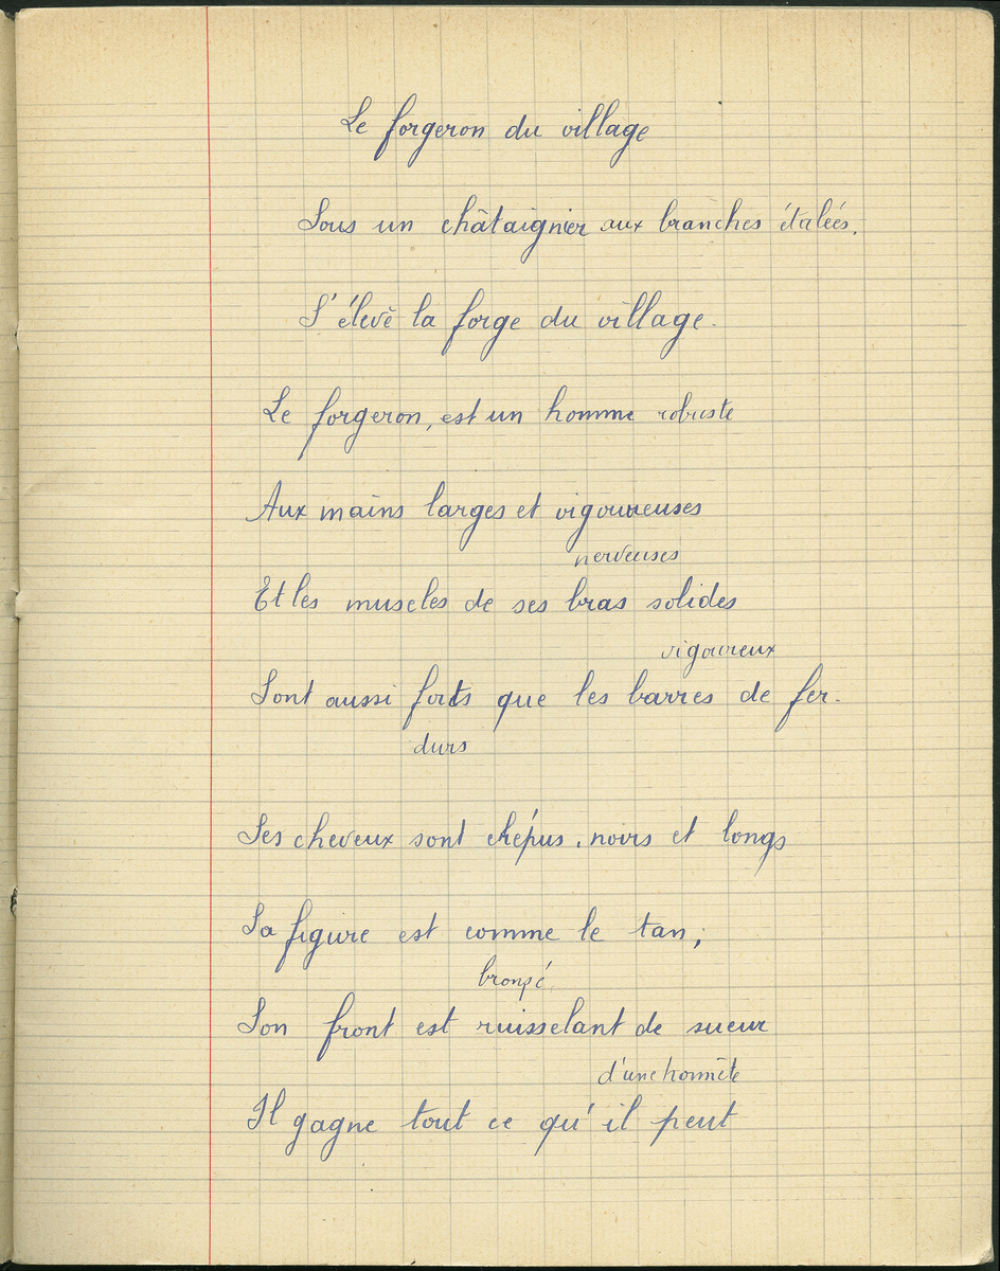 Le forgeron du village
Sous un châtaignier aux branches étaleés.
S'élevè la forge du village.
Le forgeron, est un homme robuste
Aux mains larges et vigoureuses
nerveuses
Et les muscles de ses bras solides
vigoureux
Sont aussi forts que les barres de fer.
durs
Ses cheveux sont crépus, noirs et longs
Sa figure est comme le tan;
bronzé
Son front est ruisselant de sueur
d'une honnête
Il gagne tout ce qu'il peut